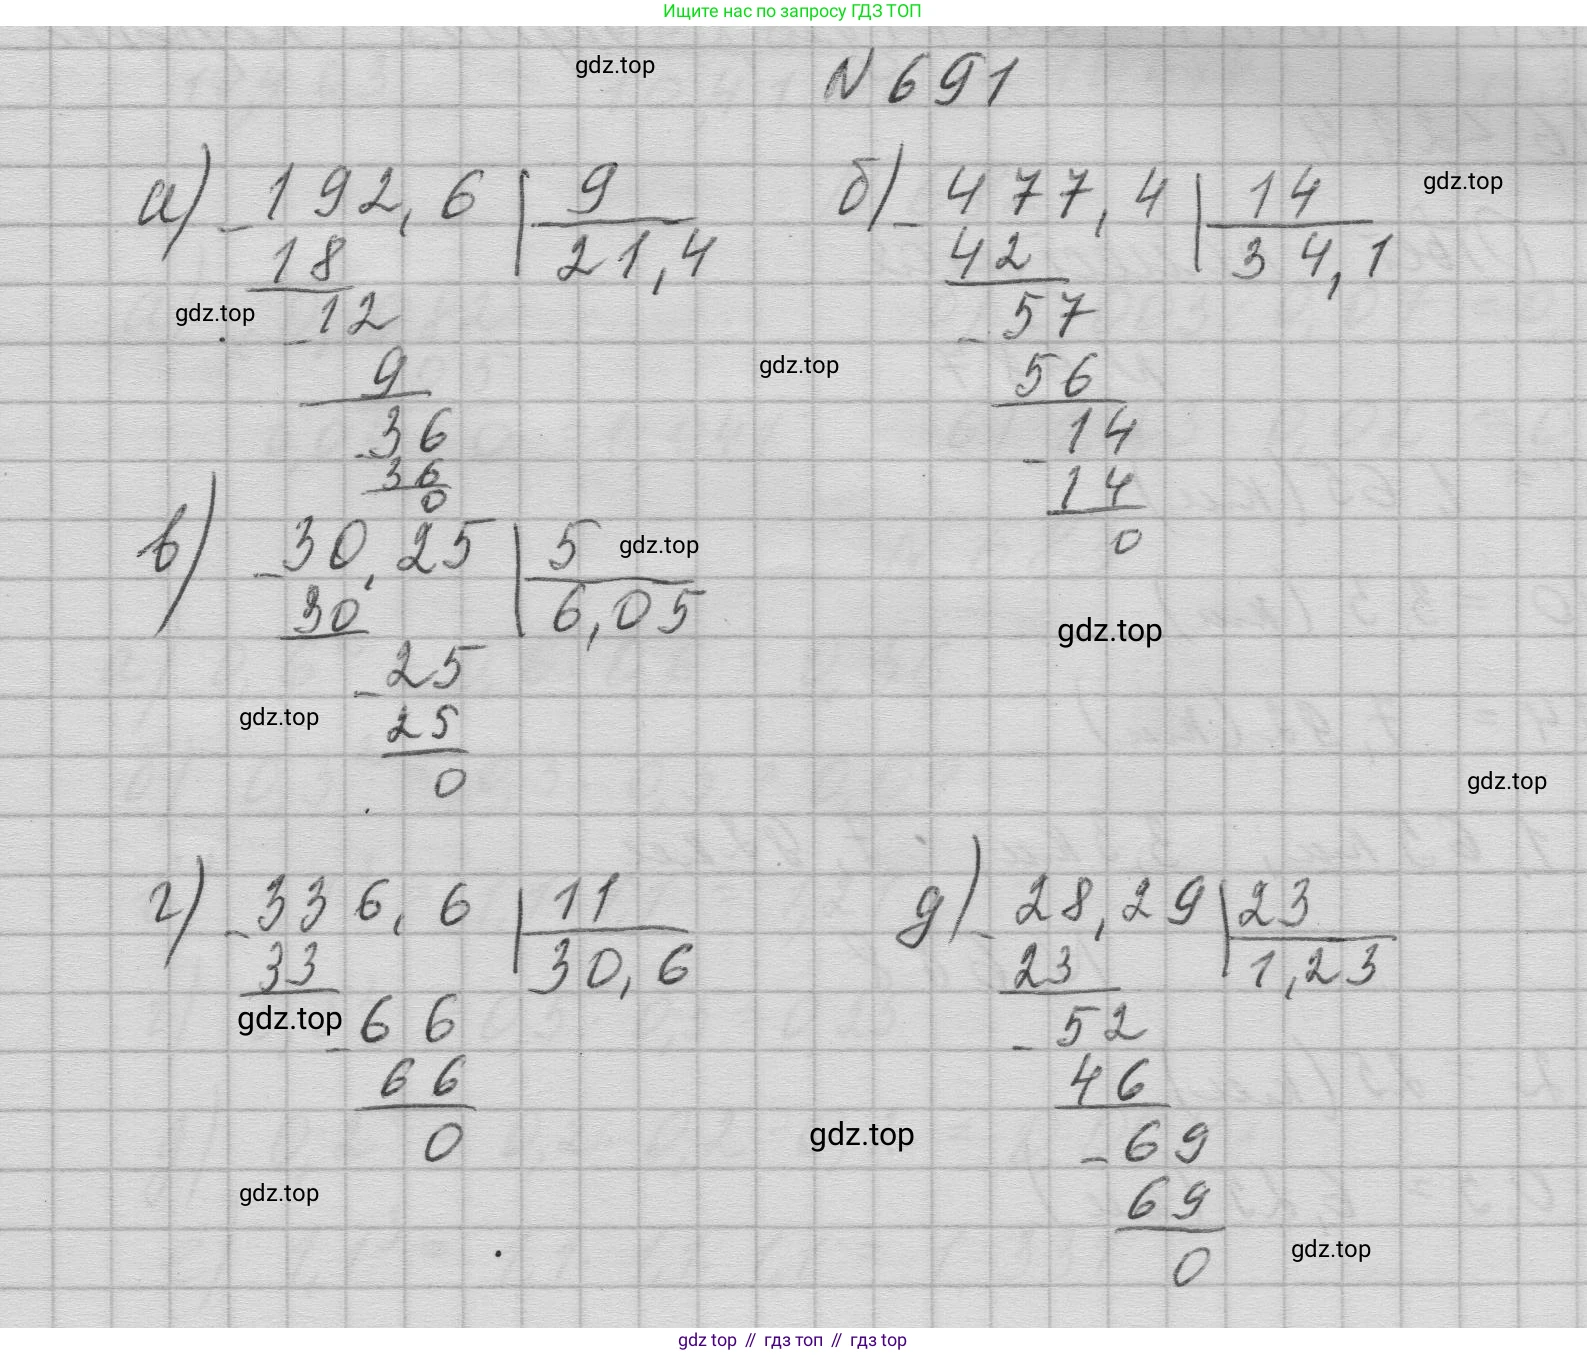 Ищите нас по запросу ГДЗ ТОП
gdz.top
N 691
а) 192,6 | 9
- 18 | 21,4
12
- 9
36
- 36
0
б) 477,4 | 14
- 42 | 34,1
57
- 56
14
- 14
0
gdz.top
gdz.top
gdz.top
в) 30,25 | 5
- 30 | 6,05
25
- 25
0
gdz.top
gdz.top
gdz.top
gdz.top
г) 336,6 | 11
- 33 | 30,6
66
- 66
0
д) 28,29 | 23
- 23 | 1,23
52
- 46
69
- 69
0
gdz.top
gdz.top
gdz.top
gdz.top
gdz top // гдз топ // гдз top